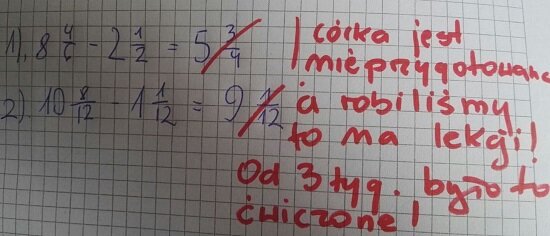 1). 8 4/6 - 2 1/2 = 5 3/4
2). 10 8/12 - 1 1/12 = 9 1/12
córka jest
nieprzygotowana
a robiliśmy
to na lekcji!
Od 3 tyg. było to
ćwiczone!